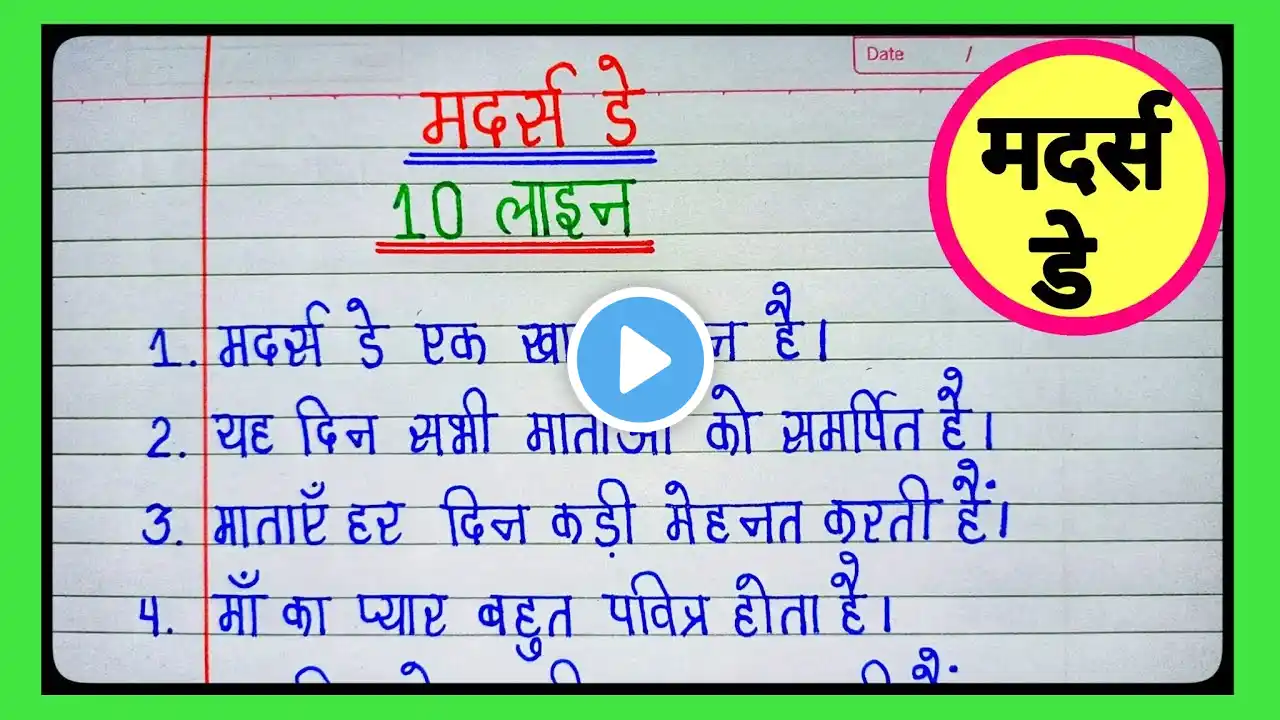 Date /
मदर्स डे
मदर्स
डे
10 लाइन
1. मदर्स डे एक है।
2. यह दिन सभी माताओं को समर्पित है।
3. माताएँ हर दिन कड़ी मेहनत करती हैं।
4. माँ का प्यार बहुत पवित्र होता है।